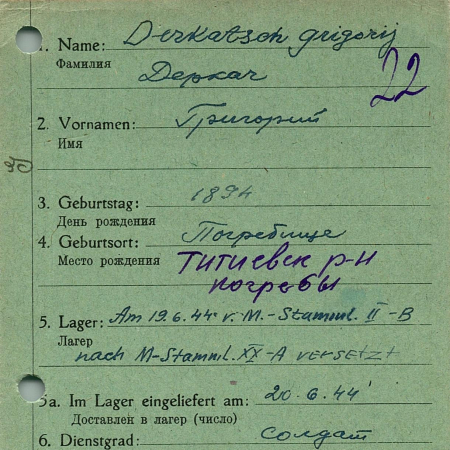 1. Name: Derkatsch grigorij
Фамилия
Деркач
22
2. Vornamen: Григорий
Имя
3. Geburtstag: 1894
День рождения
4. Geburtsort: Погребище
Место рождения Титиевск р-н
погребы
5. Lager: Am 19.6.44 v. M.-Stamml. II-B
Лагер
nach M-Stamml. XX-A versetzt
5a. Im Lager eingeliefert am: 20.6.44
Доставлен в лагер (число)
6. Dienstgrad: солдат